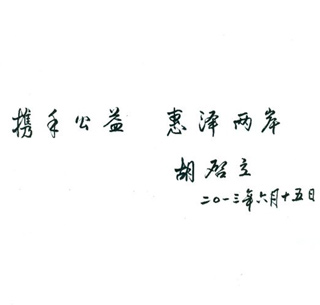 携手公益 惠泽两岸
胡启立
二〇一三年六月十五日